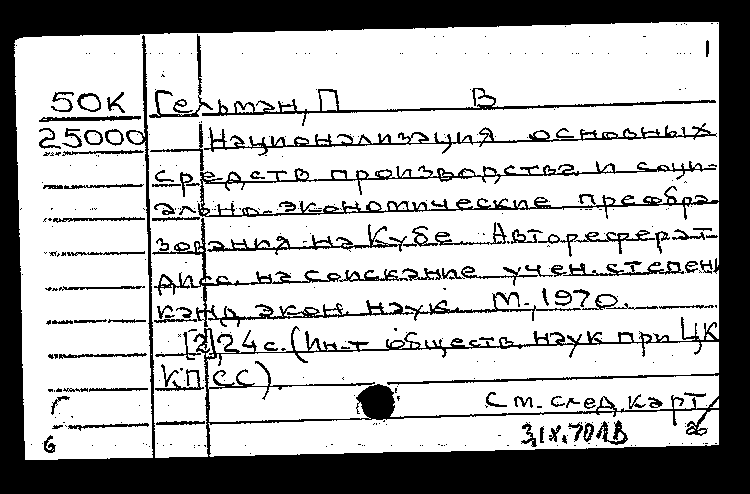 1
50К Гельман, П В
25000 Национализация основных
средств производства и соци-
ально-экономические преобра-
зования на Кубе. Автореферат
дисс. на соискание учен. степени
канд. экон. наук. М., 1970.
[2], 24 с. (Ин-т обществ. наук при ЦК
КПСС).
См. след. карт
Г
б 3.IX.701В